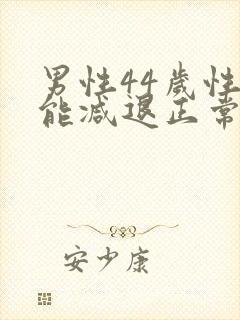 男性44歲性
能減退正常
安少康